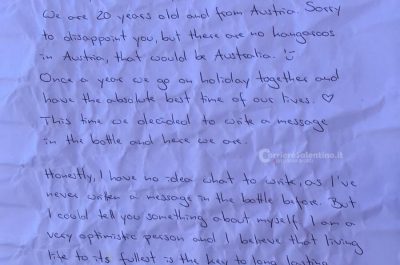 We are 20 years old and from Austria. Sorry
to disappoint you, but there are no kangaroos
in Austria, that would be Australia.
Once a year we go on holiday together and
have the absolute best time of our lives. ♡
This time we decided to write a message
in the bottle and here we are.
CorriereSalentino.it
Honestly, I have no idea what to write, as I've
never writen a message in the bottle before. But
I could tell you something about myself. I am
a very optimistic person and I believe that living
life to its fullest is the key to long lasting